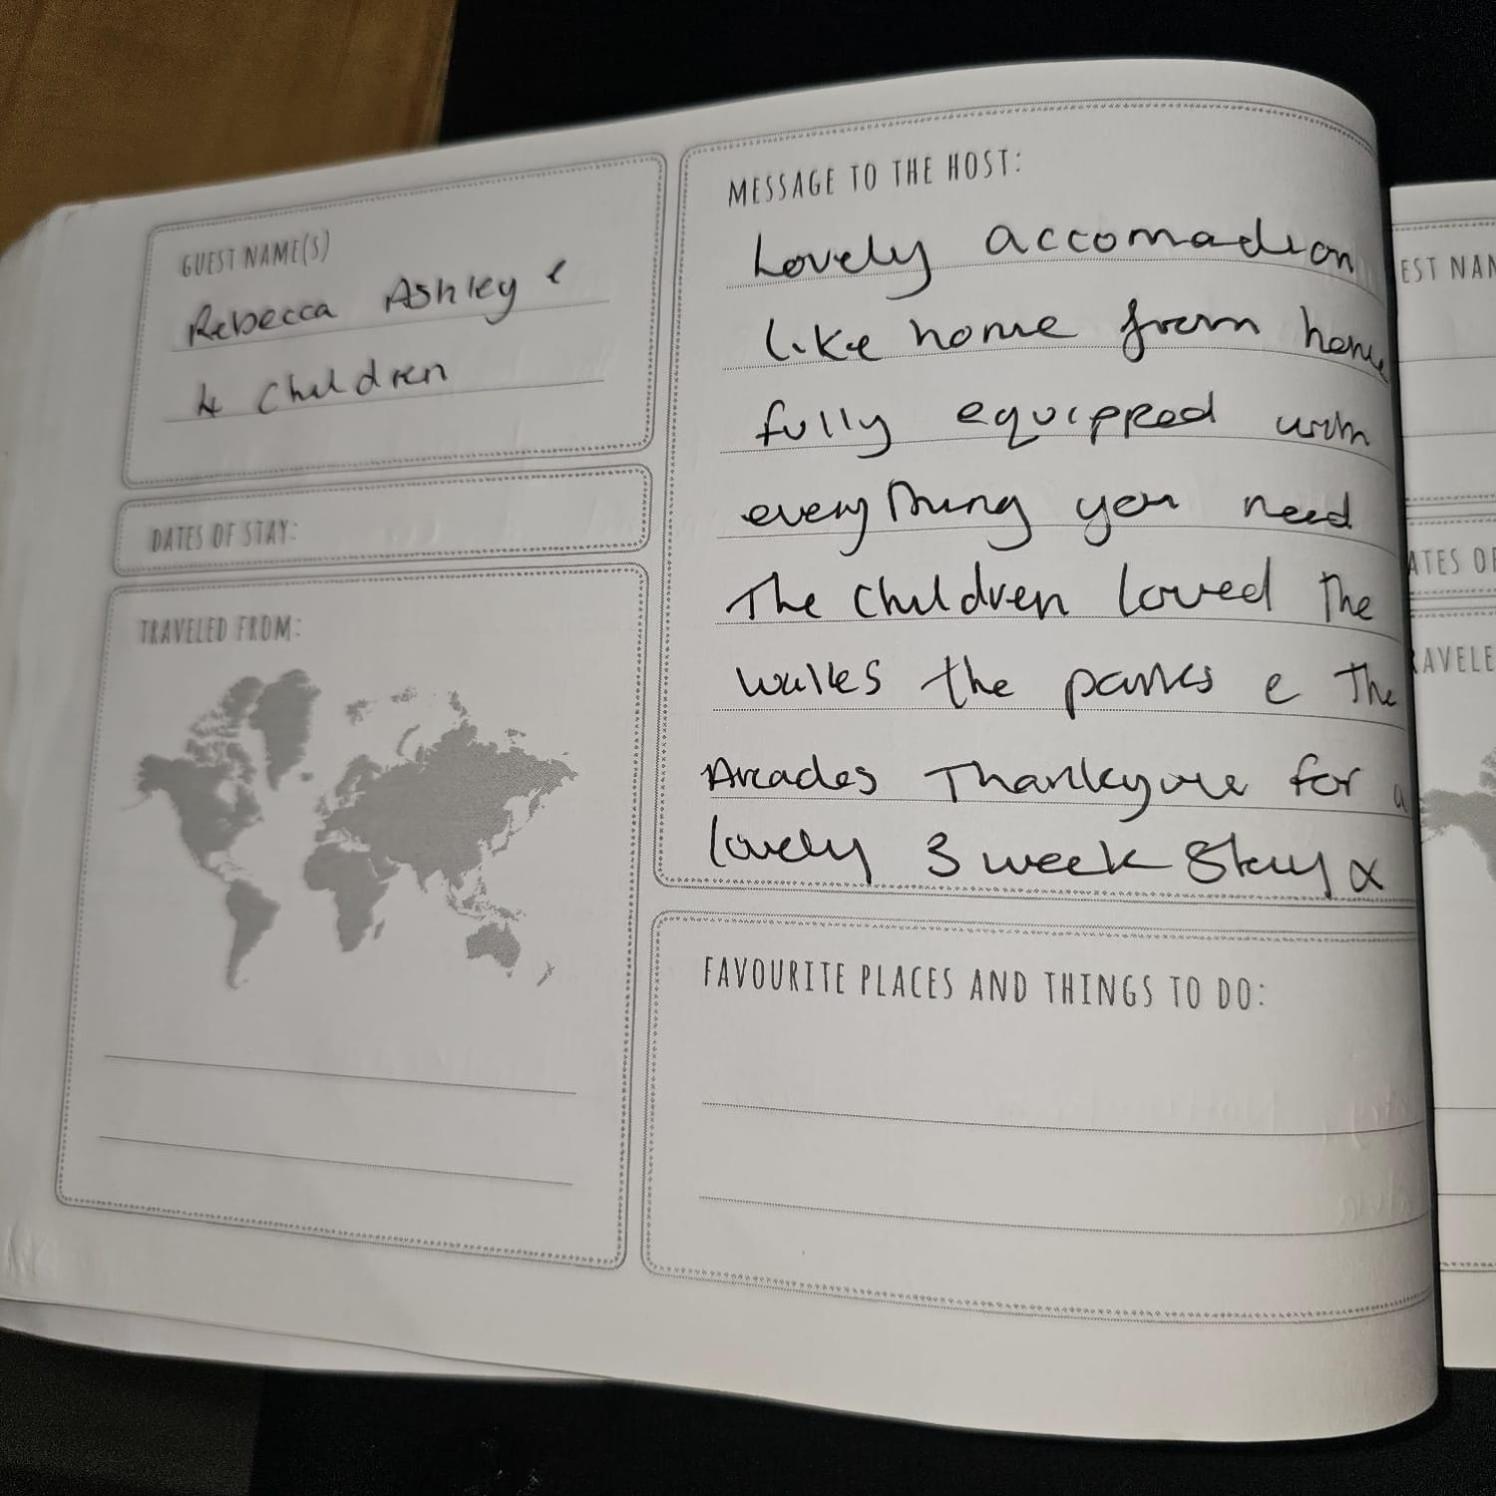 GUEST NAME(S)
Rebecca Ashley &
4 Children
DATES OF STAY:
TRAVELED FROM:
MESSAGE TO THE HOST:
Lovely accomadion
like home from home
fully equipped with
everything you need
The children loved The
walks the parks & The
Arcades Thankyou for a
lovely 3 week stay x
FAVOURITE PLACES AND THINGS TO DO:
EST NAM
ATES OF
RAVELE